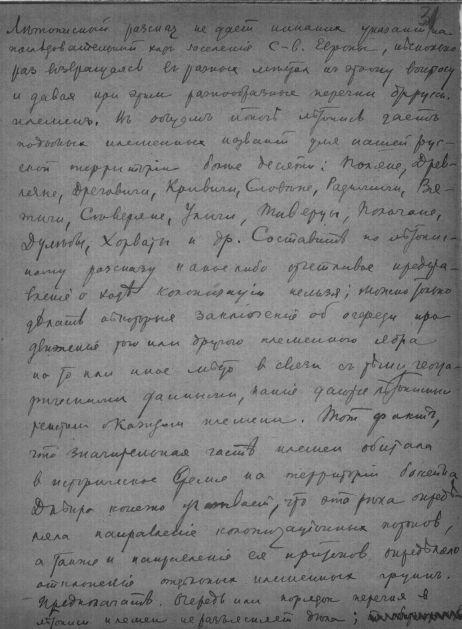 31
Летописный разсказ не дает никаких указаний на
последовательный ход заселения С-В. Европы, несколько
раз возвращаясь в разных местах к этому вопросу
и давая при этом разнообразные перечни
племен. В общем итоге летопись дает
племенных названий для нашей рус-
ской территории более десяти: Поляне, Древ-
ляне, Дреговичи, Кривичи, Словене, Радимичи, Вя-
тичи, Северяне, Уличи, Тиверцы, Полочане,
Дулебы, Хорваты и др. Составить по летопис-
ному разсказу какое либо отчетливое предста-
вление о ходе колонизации нельзя; можно только
делать некоторые заключения об очереди про-
движения того или другого племенного ядра
на то или иное место в связи съ теми геогра-
фическими данными, какие дает летописный
о каждом племени. Тот факт,
что значительная часть племен обитала
в историческое время на территории бассейна
Днепра конечно указывает, что эта река опреде-
ляла направление колонизационных потоков,
а также и направление ея притоков определяло
отклонение отдельных племенных групп.
Предполагать очередь или порядок перечня в
летописи племен не разъясняет дела;